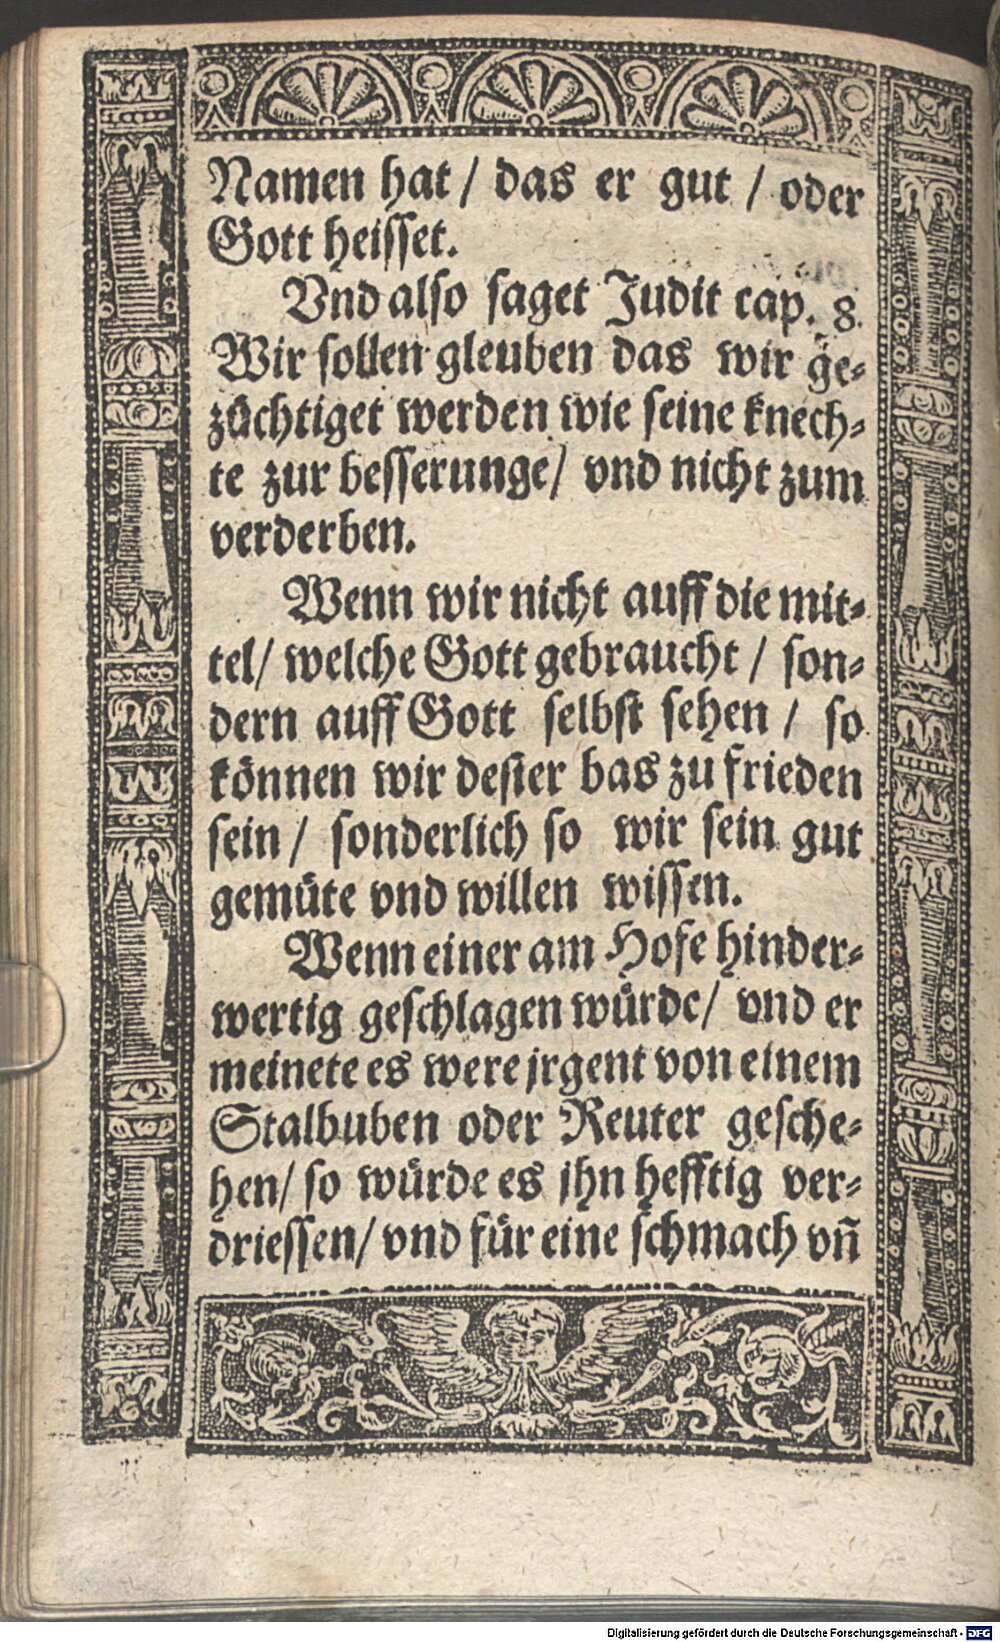 Namen hat / das er gut / oder
Gott heisset.
Vnd also saget Judit cap. 8.
Wir sollen gleuben das wir ge-
züchtiget werden wie seine knech-
te zur besserunge / vnd nicht zum
verderben.
Wenn wir nicht auff die mit-
tel / welche Gott gebraucht / son-
dern auff Gott selbst sehen / so
können wir dester bas zu frieden
sein / sonderlich so wir sein gut
gemüte vnd willen wissen.
Wenn einer am Hofe hinder-
wertig geschlagen würde / vnd er
meinete es were jrgent von einem
Stalbuben oder Reuter gesche-
hen / so würde es jhn hefftig ver-
driessen / vnd für eine schmach vñ
Digitalisierung gefördert durch die Deutsche Forschungsgemeinschaft - DFG